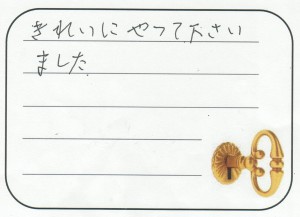 きれいにやって下さい
ました